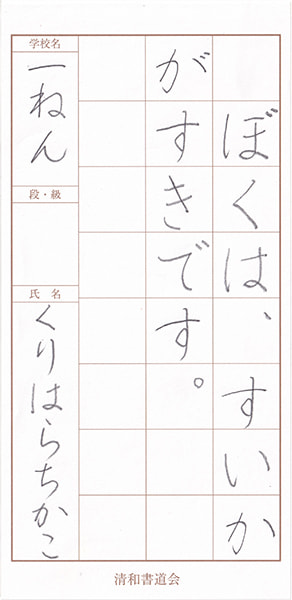 ぼくは、すいか
がすきです。
学校名
一ねん
段・級
氏名
くりはらちかこ
清和書道会